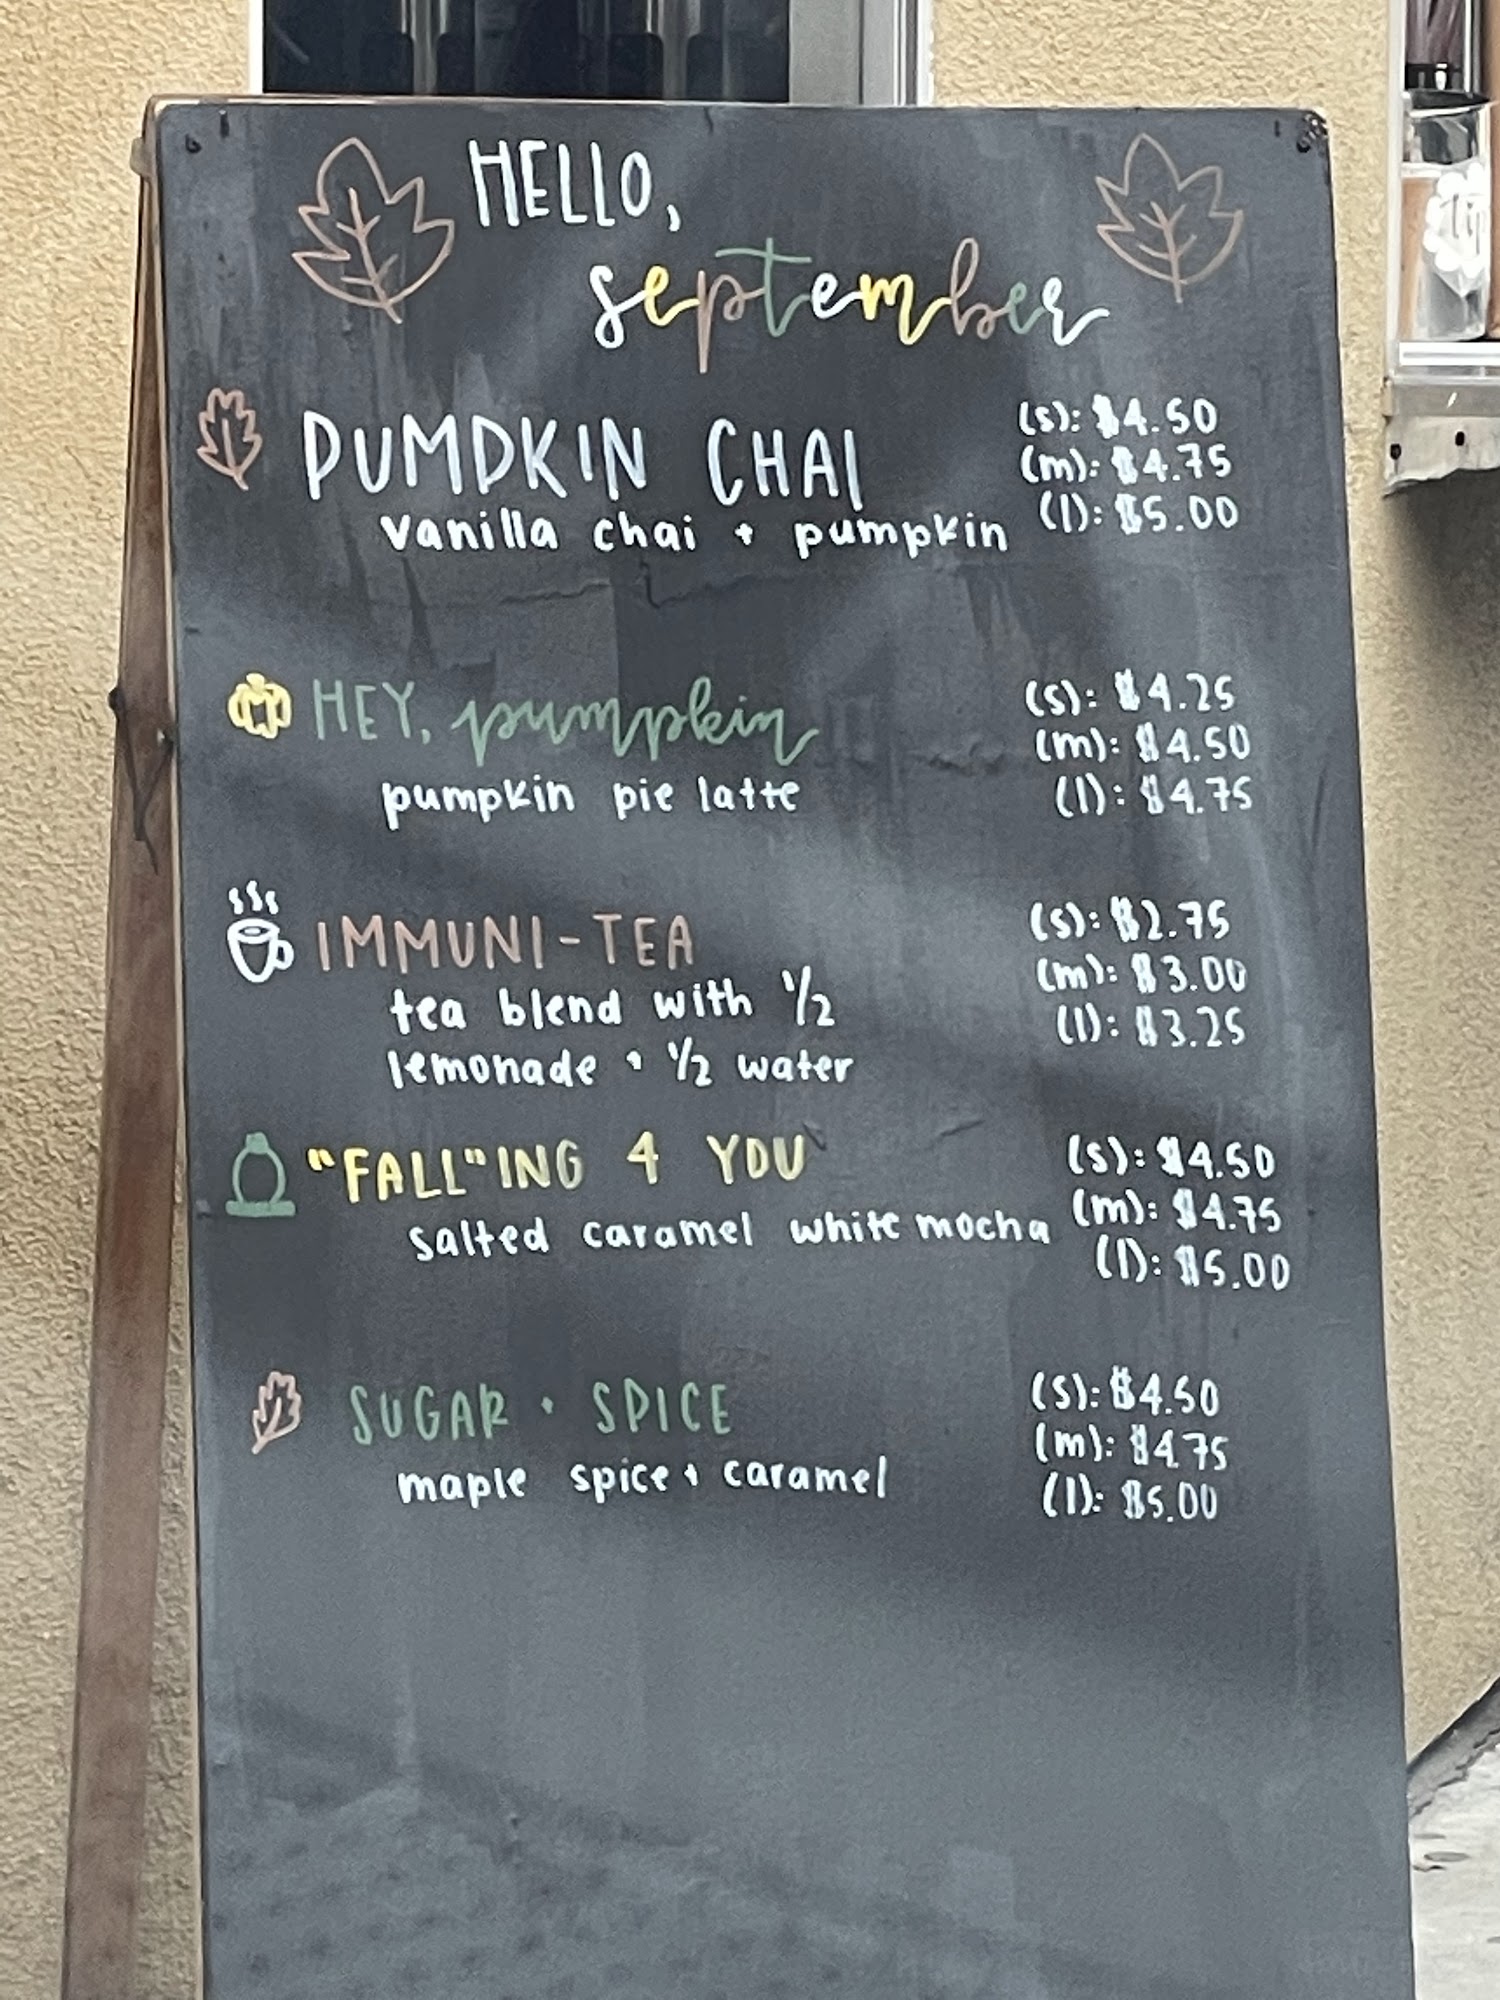 HELLO,
september
PUMPKIN CHAI
vanilla chai + pumpkin
(s): $4.50
(m): $4.75
(l): $5.00
HEY, pumpkin
pumpkin pie latte
(s): $4.25
(m): $4.50
(l): $4.75
IMMUNI-TEA
tea blend with 1/2
lemonade + 1/2 water
(s): $2.75
(m): $3.00
(l): $3.25
"FALL"ING 4 YOU
salted caramel white mocha
(s): $4.50
(m): $4.75
(l): $5.00
SUGAR + SPICE
maple spice + caramel
(s): $4.50
(m): $4.75
(l): $5.00